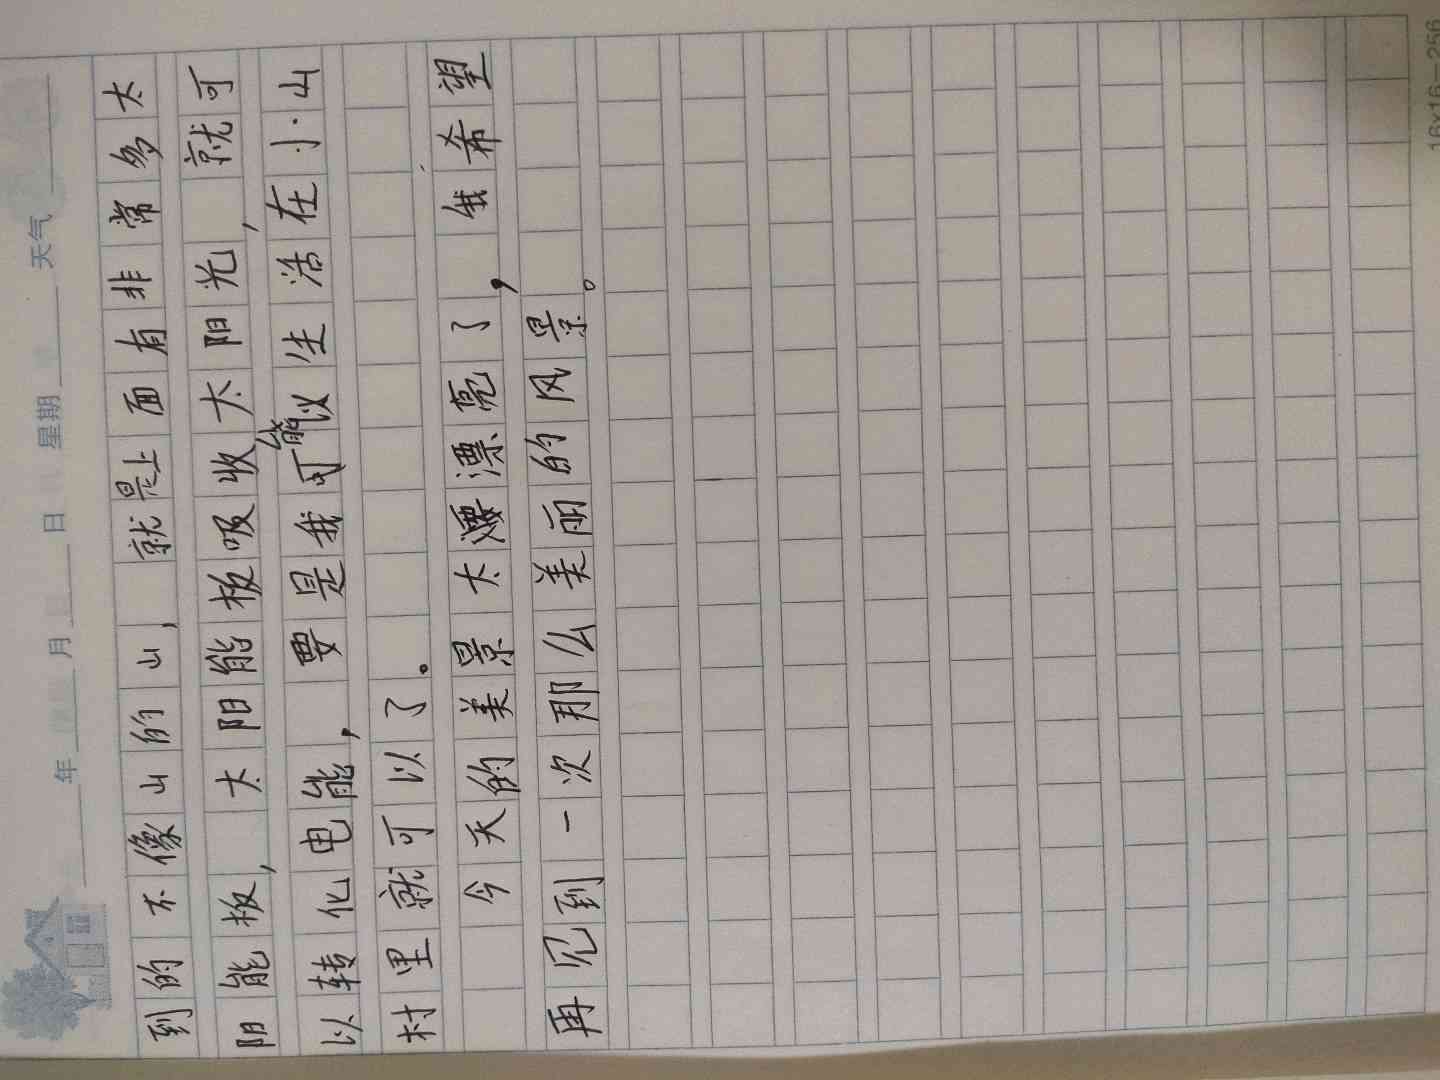 年 月 日 星期 天气
到的不像山的山，就是上面有非常多太
阳能板，太阳能板吸收太阳光，就可
以转化电能，要是我可能以生活在小山
村里就可以了。
今天的美景太漂亮了，我希望
再见到一次那么美丽的风景。
16×16=256